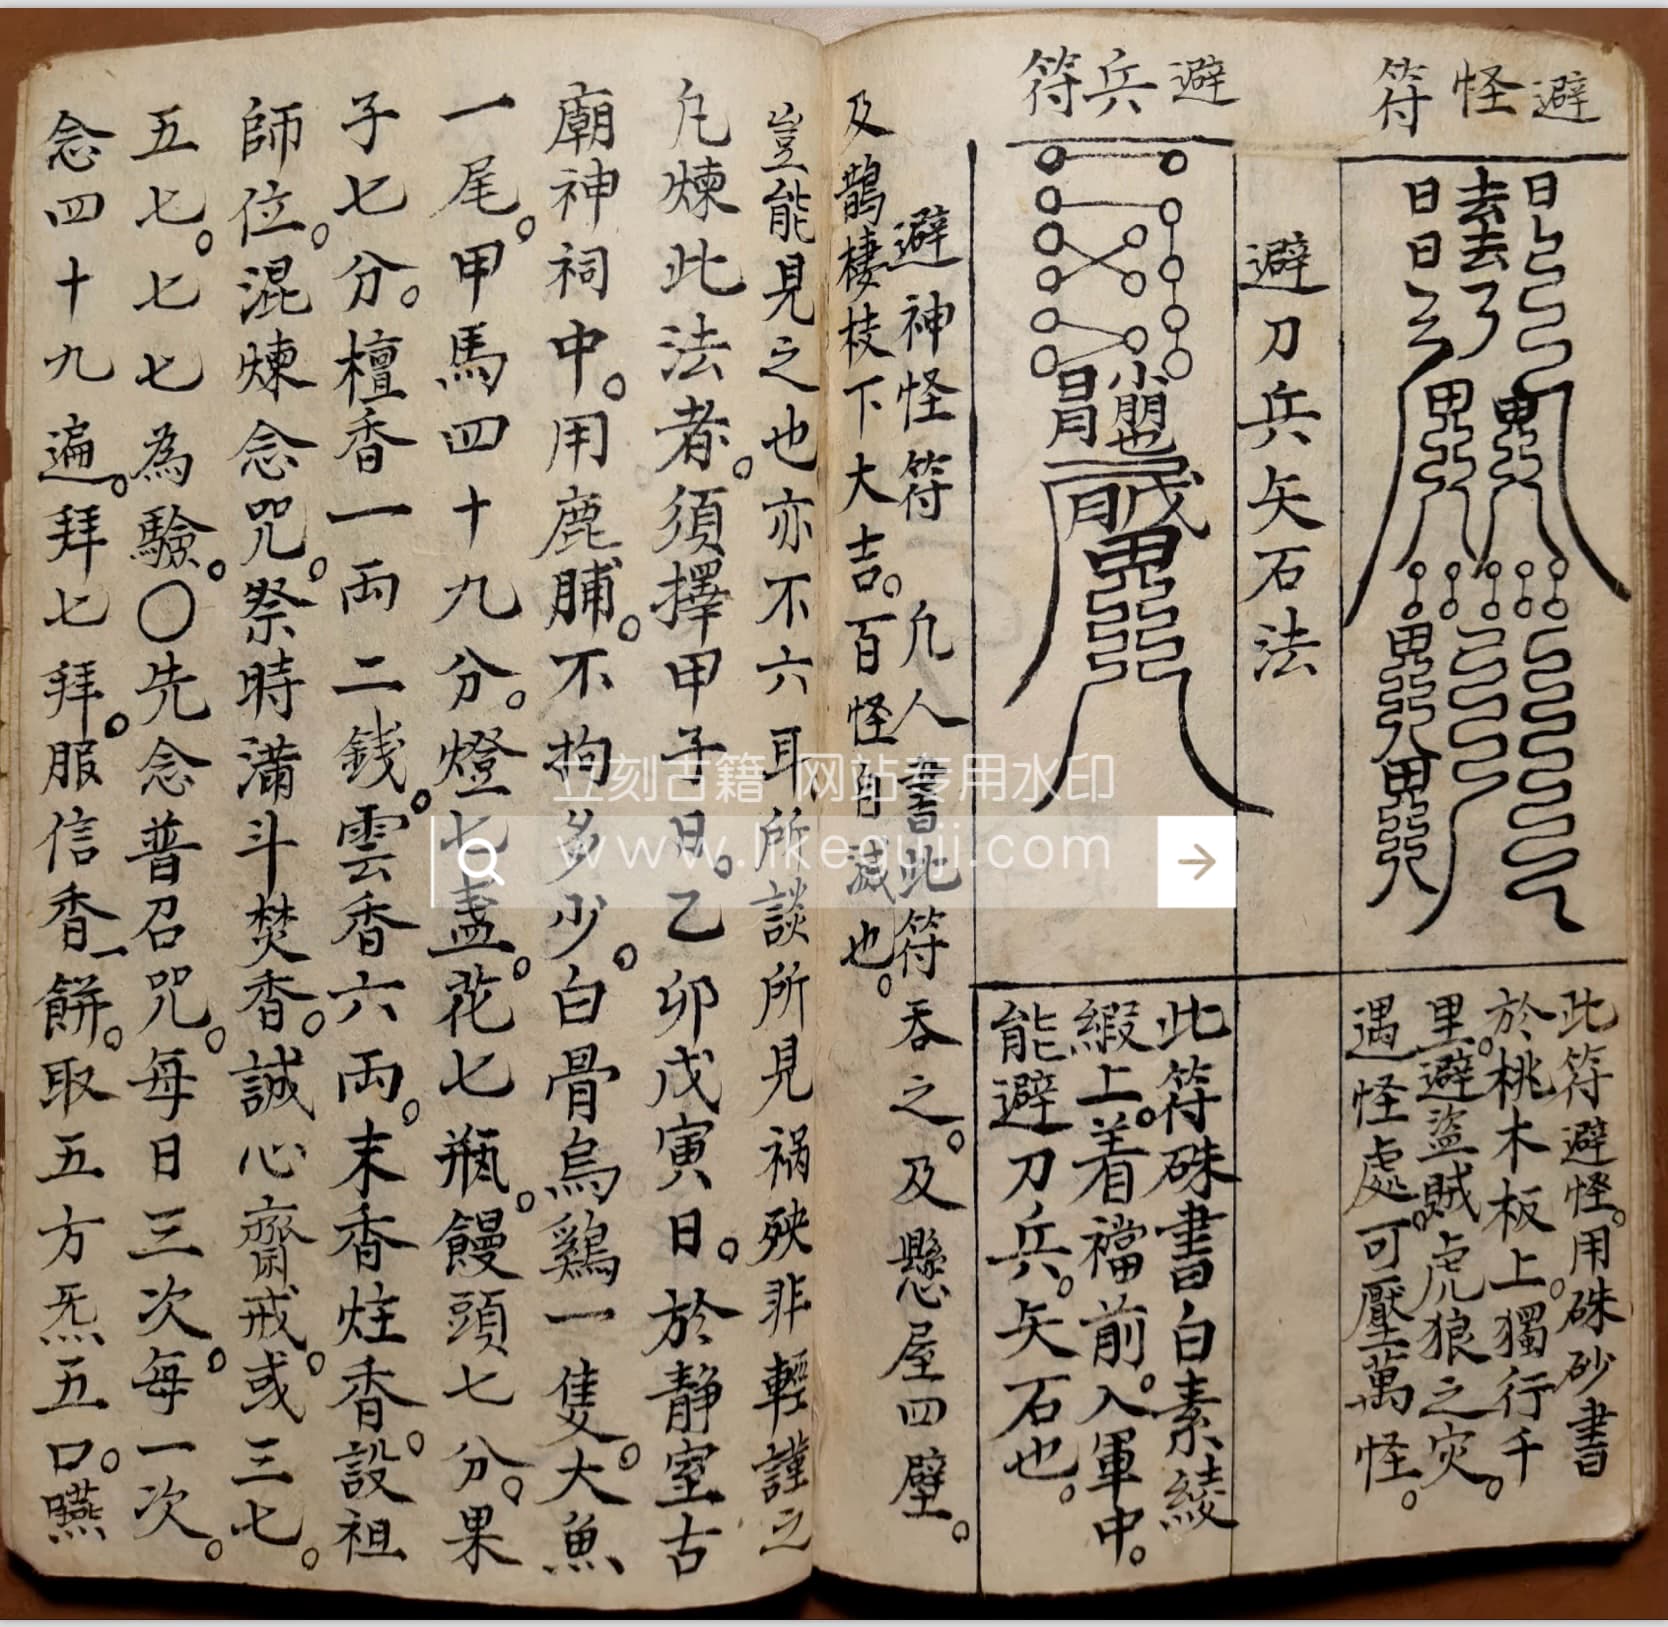 避怪符
此符避怪。用硃砂書
於桃木板上。獨行千
里。避盜賊虎狼之灾。
遇怪處。可壓萬怪。
避刀兵矢石法
避兵符
此符硃書白素綾
緞上。着襠前。入軍中。
能避刀兵。矢石也。
避神怪符 凢人書此符吞之。及懸屋四壁。
及鵲棲枝下大吉。百怪自滅也。
豈能見之也亦不六耳所談所見禍殃非輕謹之
凢煉此法者。須擇甲子日。乙卯戊寅日。於静室古
廟神祠中。用鹿脯。不拘多少。白骨烏鷄一隻。大魚
一尾。甲馬四十九分。燈七盞。花七瓶。饅頭七分。果
子七分。檀香一両二錢。雲香六両。末香炷香。設祖
師位。混煉念咒。祭時滿斗焚香。誠心齋戒。或三七。
五七。七七為驗。〇先念普召咒。每日三次。每一次。
念四十九遍。拜七拜。服信香一餅。取五方炁五口。嚥
立刻古籍 网站专用水印
www.likeguji.com